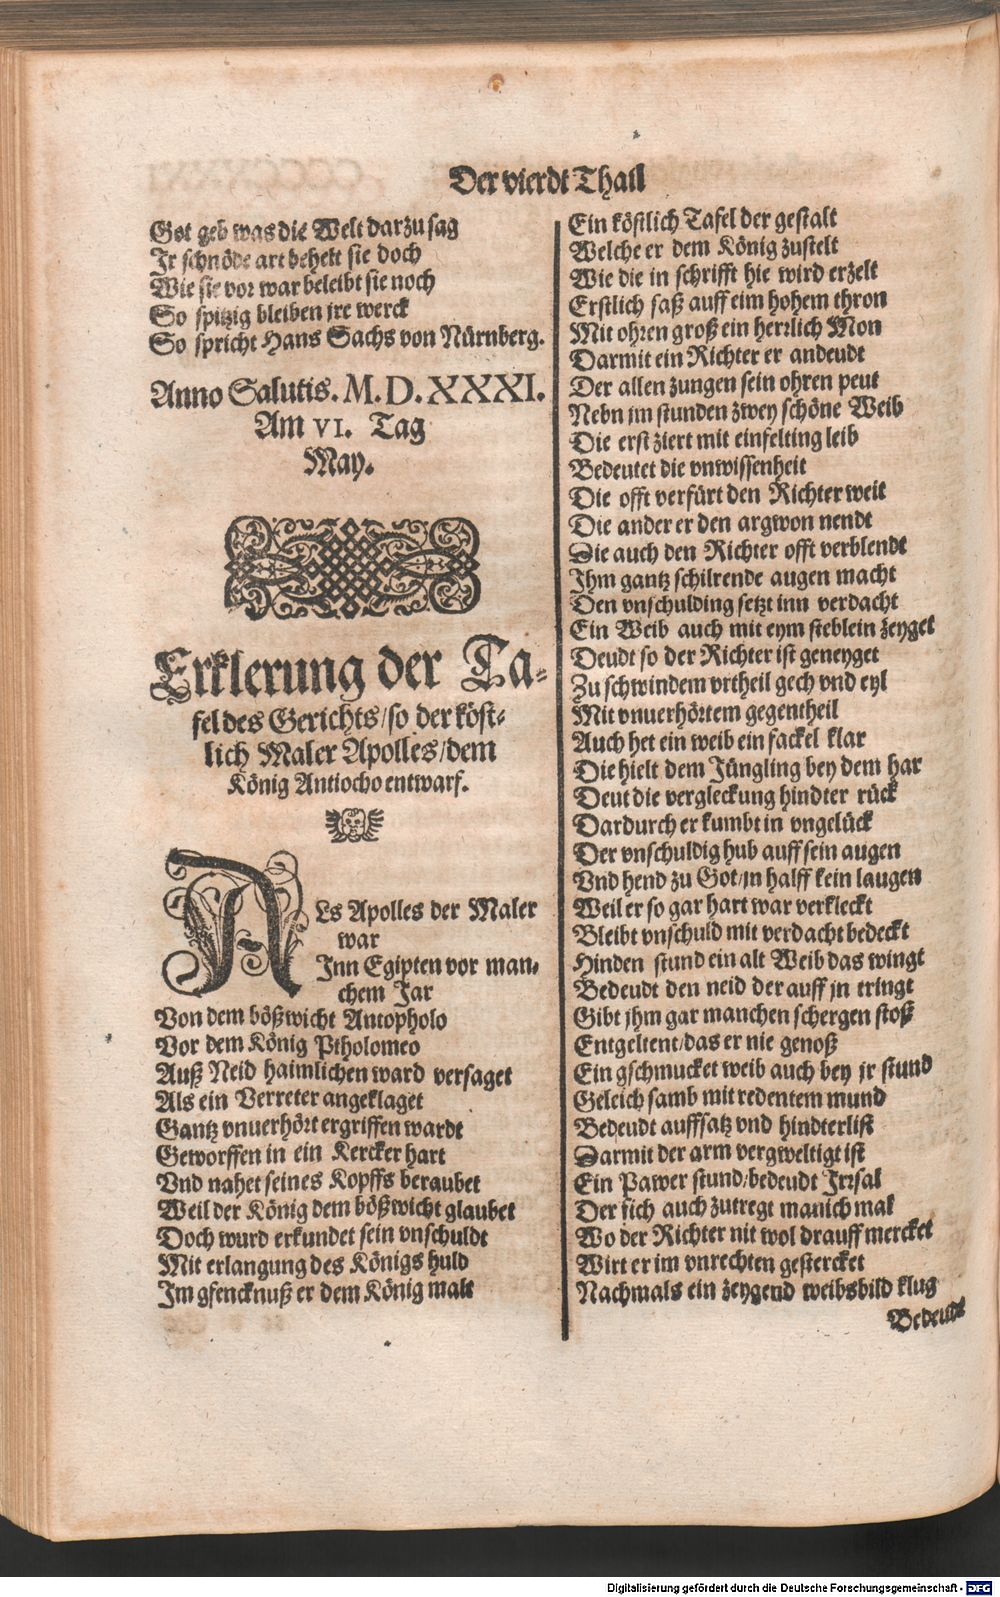 Der vierdt Thail
Got geb was die Welt darzu sag
Jr schnöde art behelt sie doch
Wie sie vor war beleibt sie noch
So spitzig bleiben jre werck
So spricht Hans Sachs von Nürnberg.
Anno Salutis. M.D.XXXI.
Am VI. Tag
May.
Erklerung der Ta-
fel des Gerichts/so der köst-
lich Maler Apolles/dem
König Antiocho entwarf.
ALs Apolles der Maler
war
Inn Egipten vor man-
chem Jar
Von dem bößwicht Antopholo
Vor dem König Ptholomeo
Auß Neid haimlichen ward versaget
Als ein Verreter angeklaget
Gantz vnuerhört ergriffen wardt
Geworffen in ein Kercker hart
Vnd nahet seines Kopffs beraubet
Weil der König dem bößwicht glaubet
Doch wurd erkundet sein vnschuldt
Mit erlangung des Königs huld
Im gfencknuß er dem König malt
Ein köstlich Tafel der gestalt
Welche er dem König zustelt
Wie die in schrifft hie wird erzelt
Erstlich saß auff eim hohem thron
Mit ohren groß ein herrlich Mon
Darmit ein Richter er andeudt
Der allen zungen sein ohren peut
Nebn jm stunden zwey schöne Weib
Die erst ziert mit einfelting leib
Bedeutet die vnwissenheit
Die offt verfürt den Richter weit
Die ander er den argwon nendt
Die auch den Richter offt verblendt
Ihm gantz schilrende augen macht
Den vnschulding setzt inn verdacht
Ein Weib auch mit eym steblein zeyget
Deudt so der Richter ist geneyget
Zu schwindem vrtheil gech vnd eyl
Mit vnuerhörtem gegentheil
Auch het ein weib ein fackel klar
Die hielt dem Jüngling bey dem har
Deut die vergleckung hindter rück
Dardurch er kumbt in vngelück
Der vnschuldig hub auff sein augen
Vnd hend zu Got/jn halff kein laugen
Weil er so gar hart war verkleckt
Bleibt vnschuld mit verdacht bedeckt
Hinden stund ein alt Weib das wingt
Bedeudt den neid der auff jn tringt
Gibt jhm gar manchen schergen stoß
Entgeltent/das er nie genoß
Ein gschmucket weib auch bey jr stund
Geleich samb mit redentem mund
Bedeudt auffsatz vnd hindterlist
Darmit der arm vergweltigt ist
Ein Pawer stund/bedeudt Jrrsal
Der sich auch zutregt manich mal
Wo der Richter nit wol drauff mercket
Wirt er im vnrechten gestercket
Nachmals ein zeygend weibsbild klug
Bedeudt
Digitalisierung gefördert durch die Deutsche Forschungsgemeinschaft - DFG